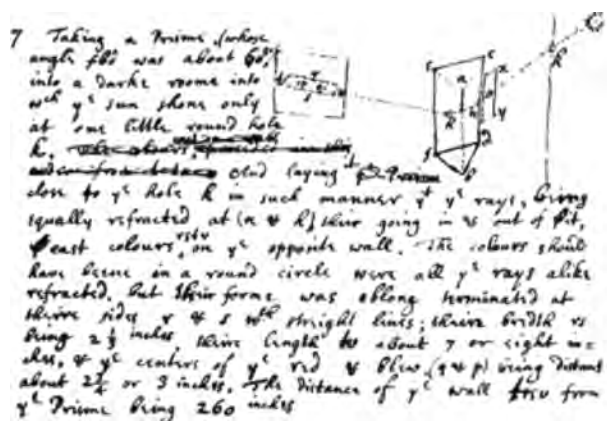 7 Taking a Prisme, (whose
angle fbd was about 60gr)
into a darke roome into
wch ye sun shone only
at one little round hole
k.
And laying it
close to ye hole k in such manner yt ye rays, being
equally refracted at (n & h) their going in & out of it,
cast colours rstv on ye opposite wall. The colours should
have beene in a round circle were all ye rays alike
refracted, but their forme was oblong terminated at
theire sides r & s wth streight lines; theire bredth rs
being 2⅓ inches, theire length tv about 7 or eight in=
ches, & ye centers of ye red & blew, (q & p) being distant
about 2¾ or 3 inches. The distance of ye wall trsv from
ye Prisme being 260 inches